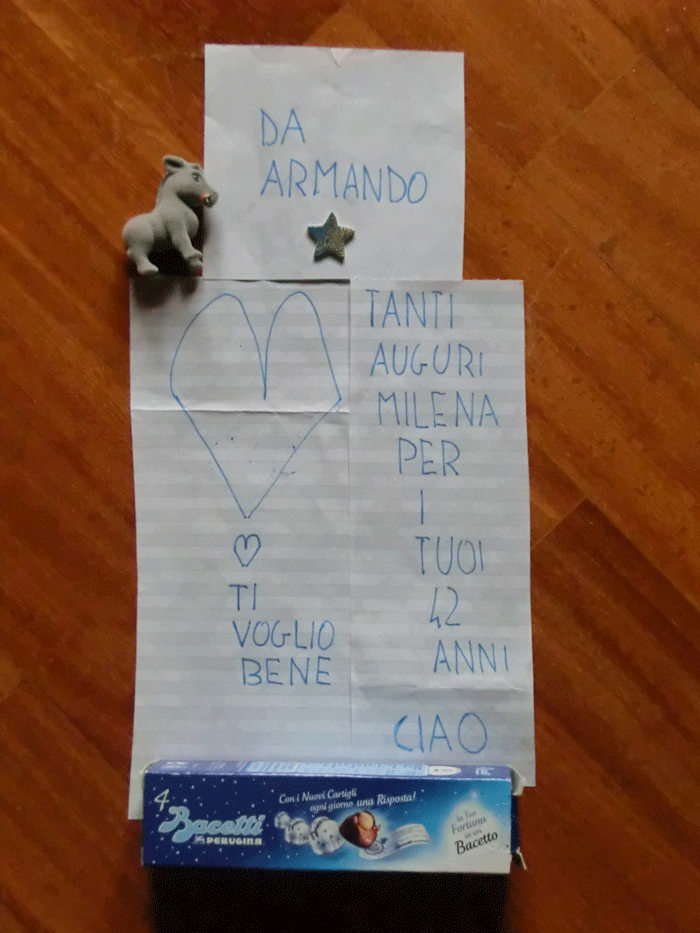 DA
ARMANDO
TI
VOGLIO
BENE
TANTI
AUGURI
MILENA
PER
I
TUOI
42
ANNI
CIAO
4
Bacetti
PERUGINA
Con i Nuovi Cartigli
ogni giorno una Risposta!
la Tua
Fortuna
in un
Bacetto